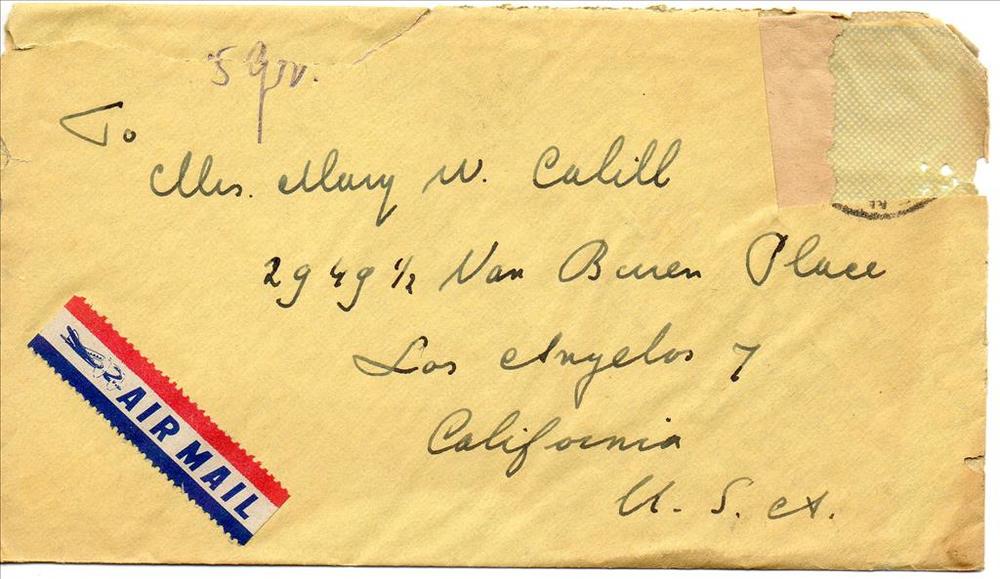 5 gr.
To
Mrs. Mary W. Cahill
2949 1/2 Van Buren Place
Los Angelos 7
California
U. S. A.
AIR MAIL